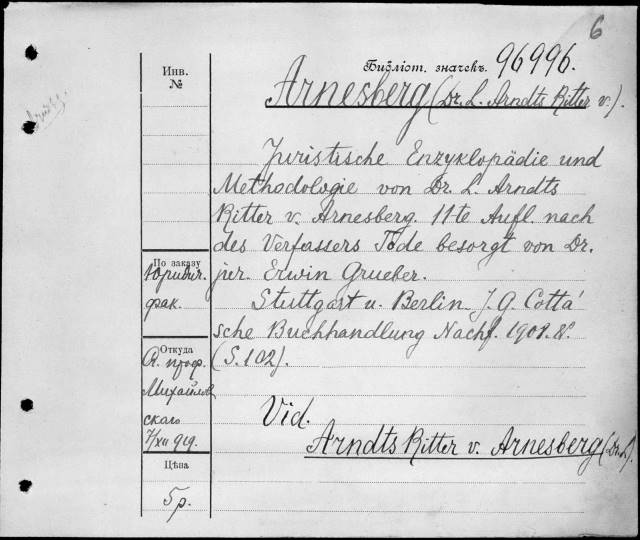 6
Библіот. значекъ. 96996.
Инв.
№
Arnesberg (Dr. L. Arndts Ritter v.).
Juristische Enzyklopädie und
Methodologie von Dr. L. Arndts
Ritter v. Arnesberg. 11te Aufl. nach
des Verfassers Tode besorgt von Dr.
jur. Erwin Grueber.
Stuttgart u. Berlin. J. G. Cotta'
sche Buchhandlung Nachf. 1908. 8º.
(S. 102).
Vid.
Arndts Ritter v. Arnesberg (Dr. L.).
По заказу
Юридич.
фак.
Откуда
проф.
Михайлов
скаго
7/XII 919.
Цѣна
5 р.